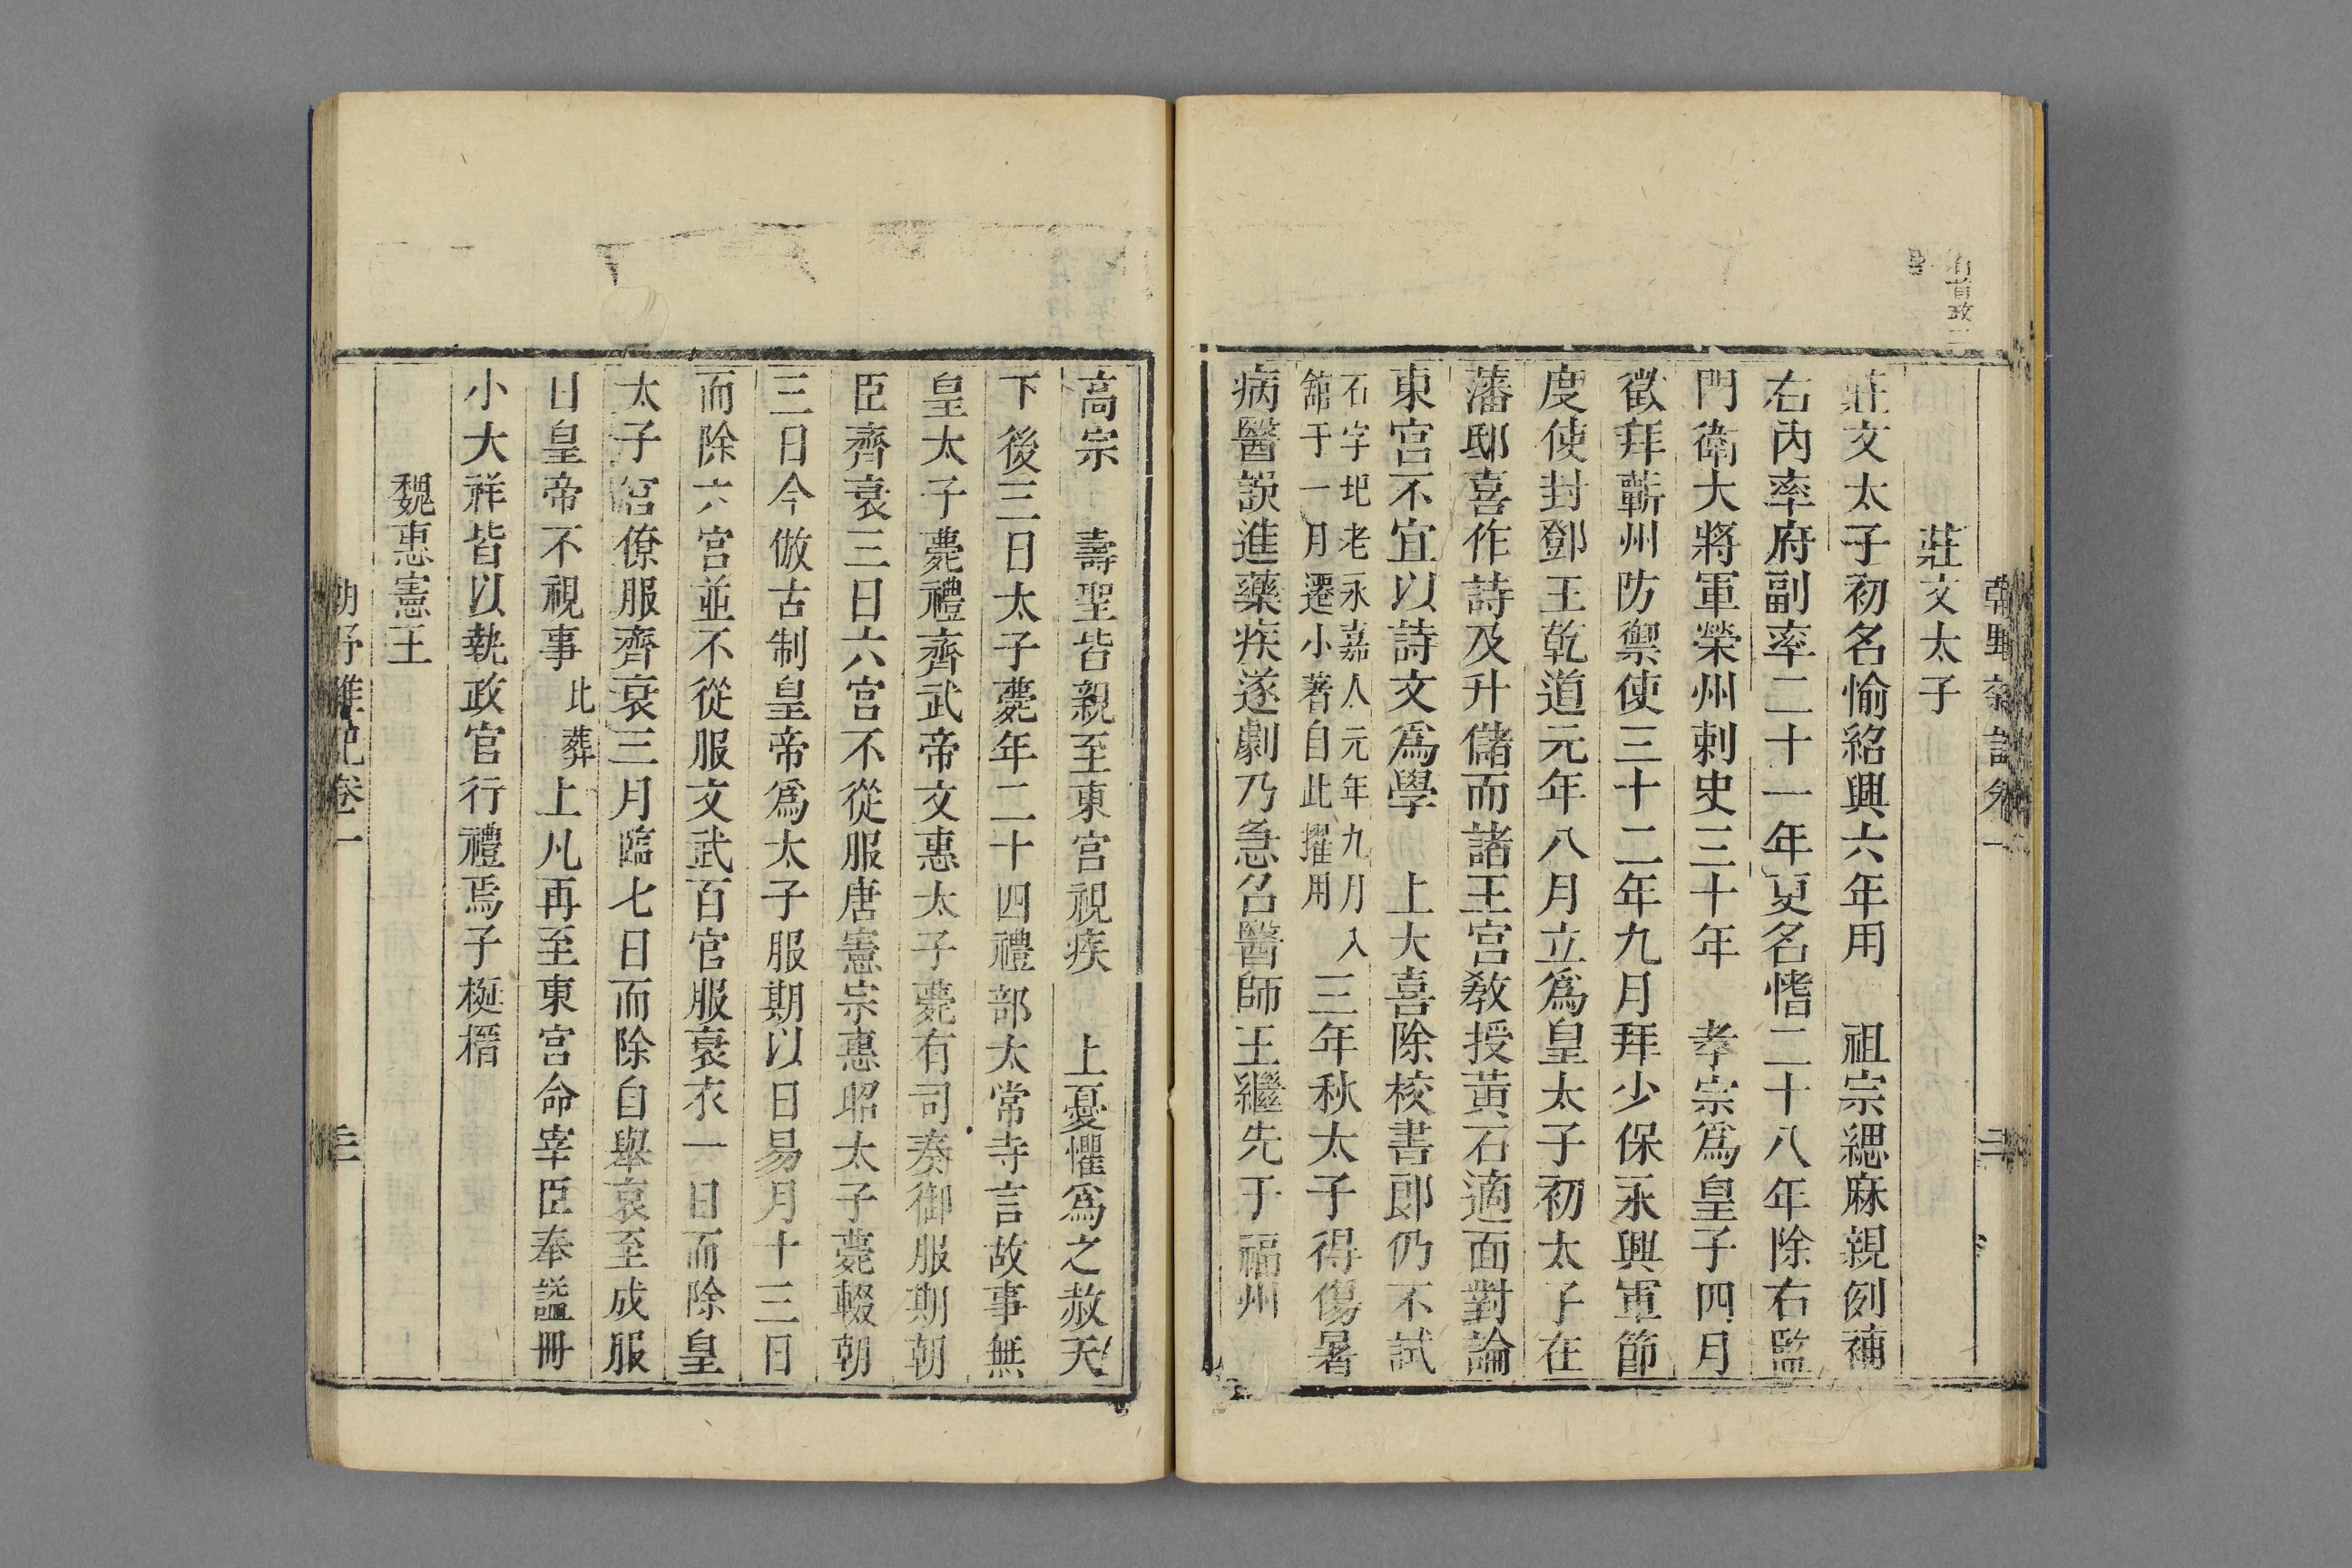 朝野雜記卷一
三
莊文太子
莊文太子初名愉紹興六年用 祖宗緦麻親例補
右內率府副率二十一年更名愭二十八年除右監
門衛大將軍榮州刺史三十年 孝宗爲皇子四月
徵拜蘄州防禦使三十二年九月拜少保永興軍節
度使封鄧王乾道元年八月立爲皇太子初太子在
藩邸喜作詩及升儲而諸王宮教授黃石適面對論
東宮不宜以詩文爲學 上大喜除校書郎仍不試
石字圯老永嘉人元年九月入
館于一月遷小著自此擢用 三年秋太子得傷暑
病醫誤進藥疾遂劇乃急召醫師王繼先于福州
高宗 壽聖皆親至東宮視疾 上憂懼爲之赦天
下後三日太子薨年二十四禮部太常寺言故事無
皇太子薨禮齊武帝文惠太子薨有司奏御服期朝
臣齊衰三日六宮不從服唐憲宗惠昭太子薨輟朝
三日今倣古制皇帝爲太子服期以日易月十三日
而除六宮並不從服文武百官服衰衣一日而除皇
太子宮僚服齊衰三月臨七日而除自舉哀至成服
日皇帝不視事 此葬 上凡再至東宮命宰臣奉諡冊
小大祥皆以執政官行禮焉子梴榗
魏惠憲王
朝野雜記卷一
三